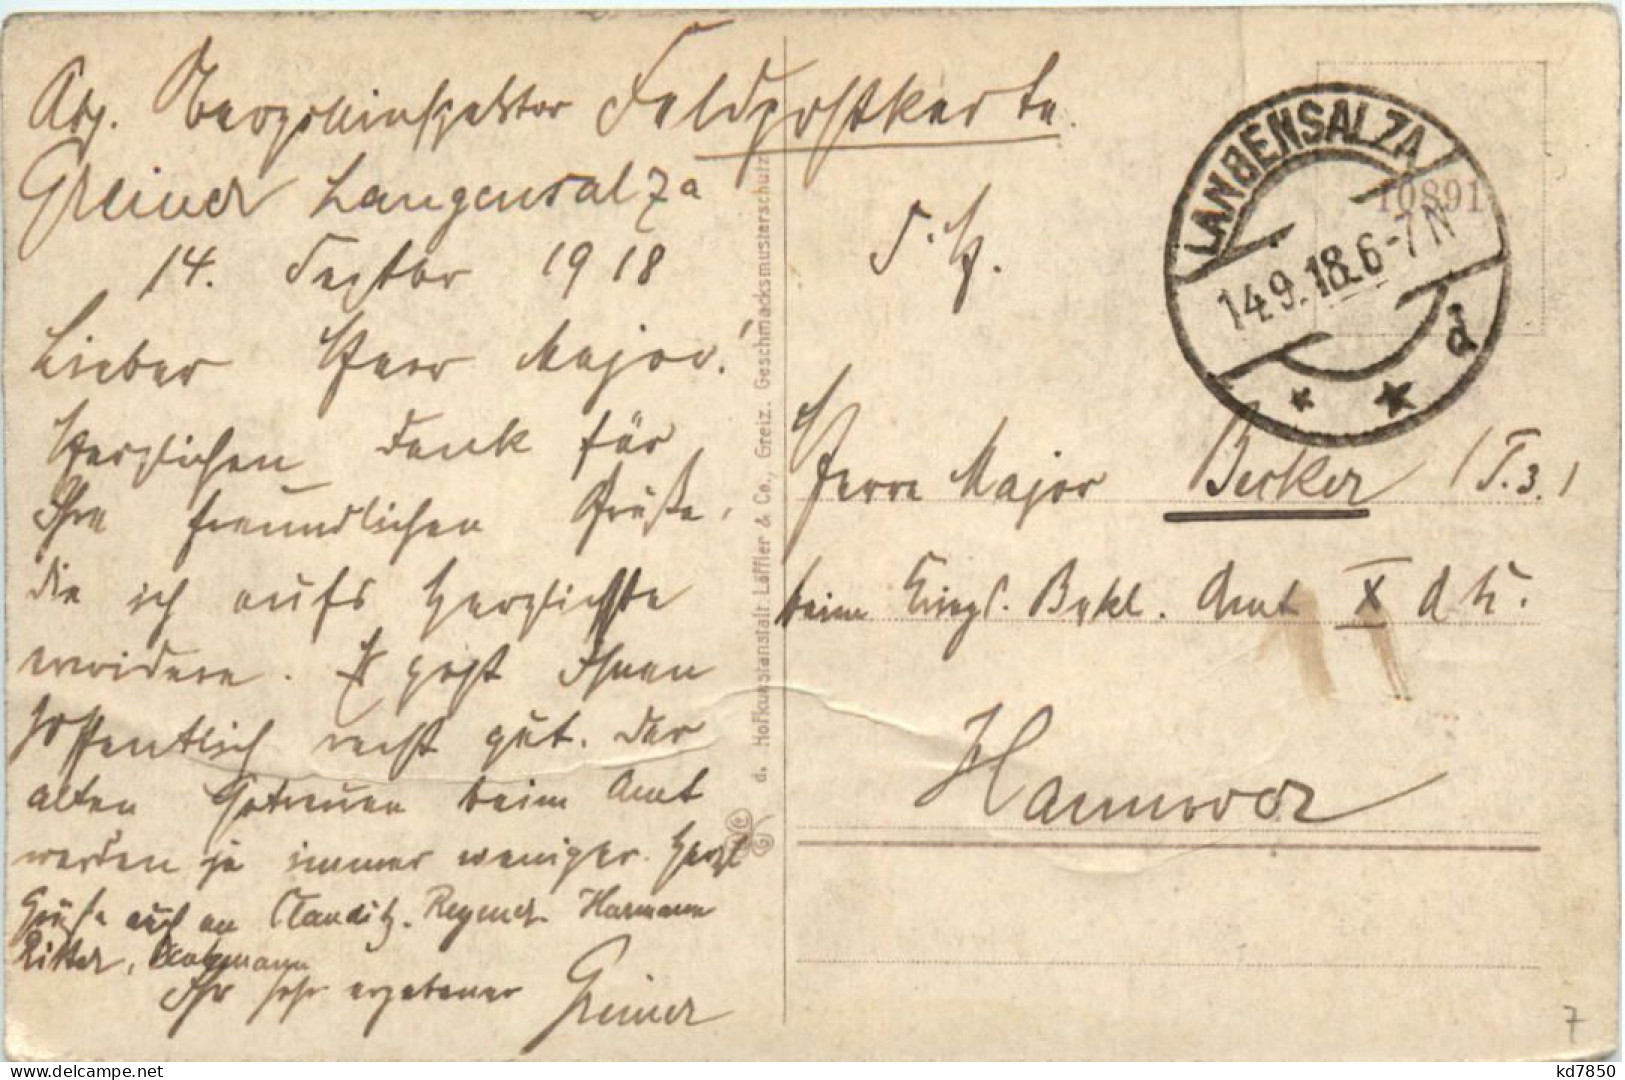 Feldpostkarte.
Greiner Langensalza
14. Septbr 1918
Lieber Herr Major!
Herzlichen Dank für
Ihre freundlichen Grüße,
die ich aufs herzlichste
erwidere. Es geht Ihnen
hoffentlich recht gut. Der
alten Getreuen beim Amt
werden ja immer weniger. Herzl
Grüße auch an Clauditz. Regner. Harmann
Ritter,
Ihr sehr ergebener Greiner
d. Hofkunstanstalt Löffler & Co., Greiz. Geschmacksmusterschutz
S. H.
LANGENSALZA
14.9.18. 6-7 N
10891
Herrn Major Becker (T.3.)
beim Kriegs. Bekl. Amt X A K.
Hannover
7
kd7850